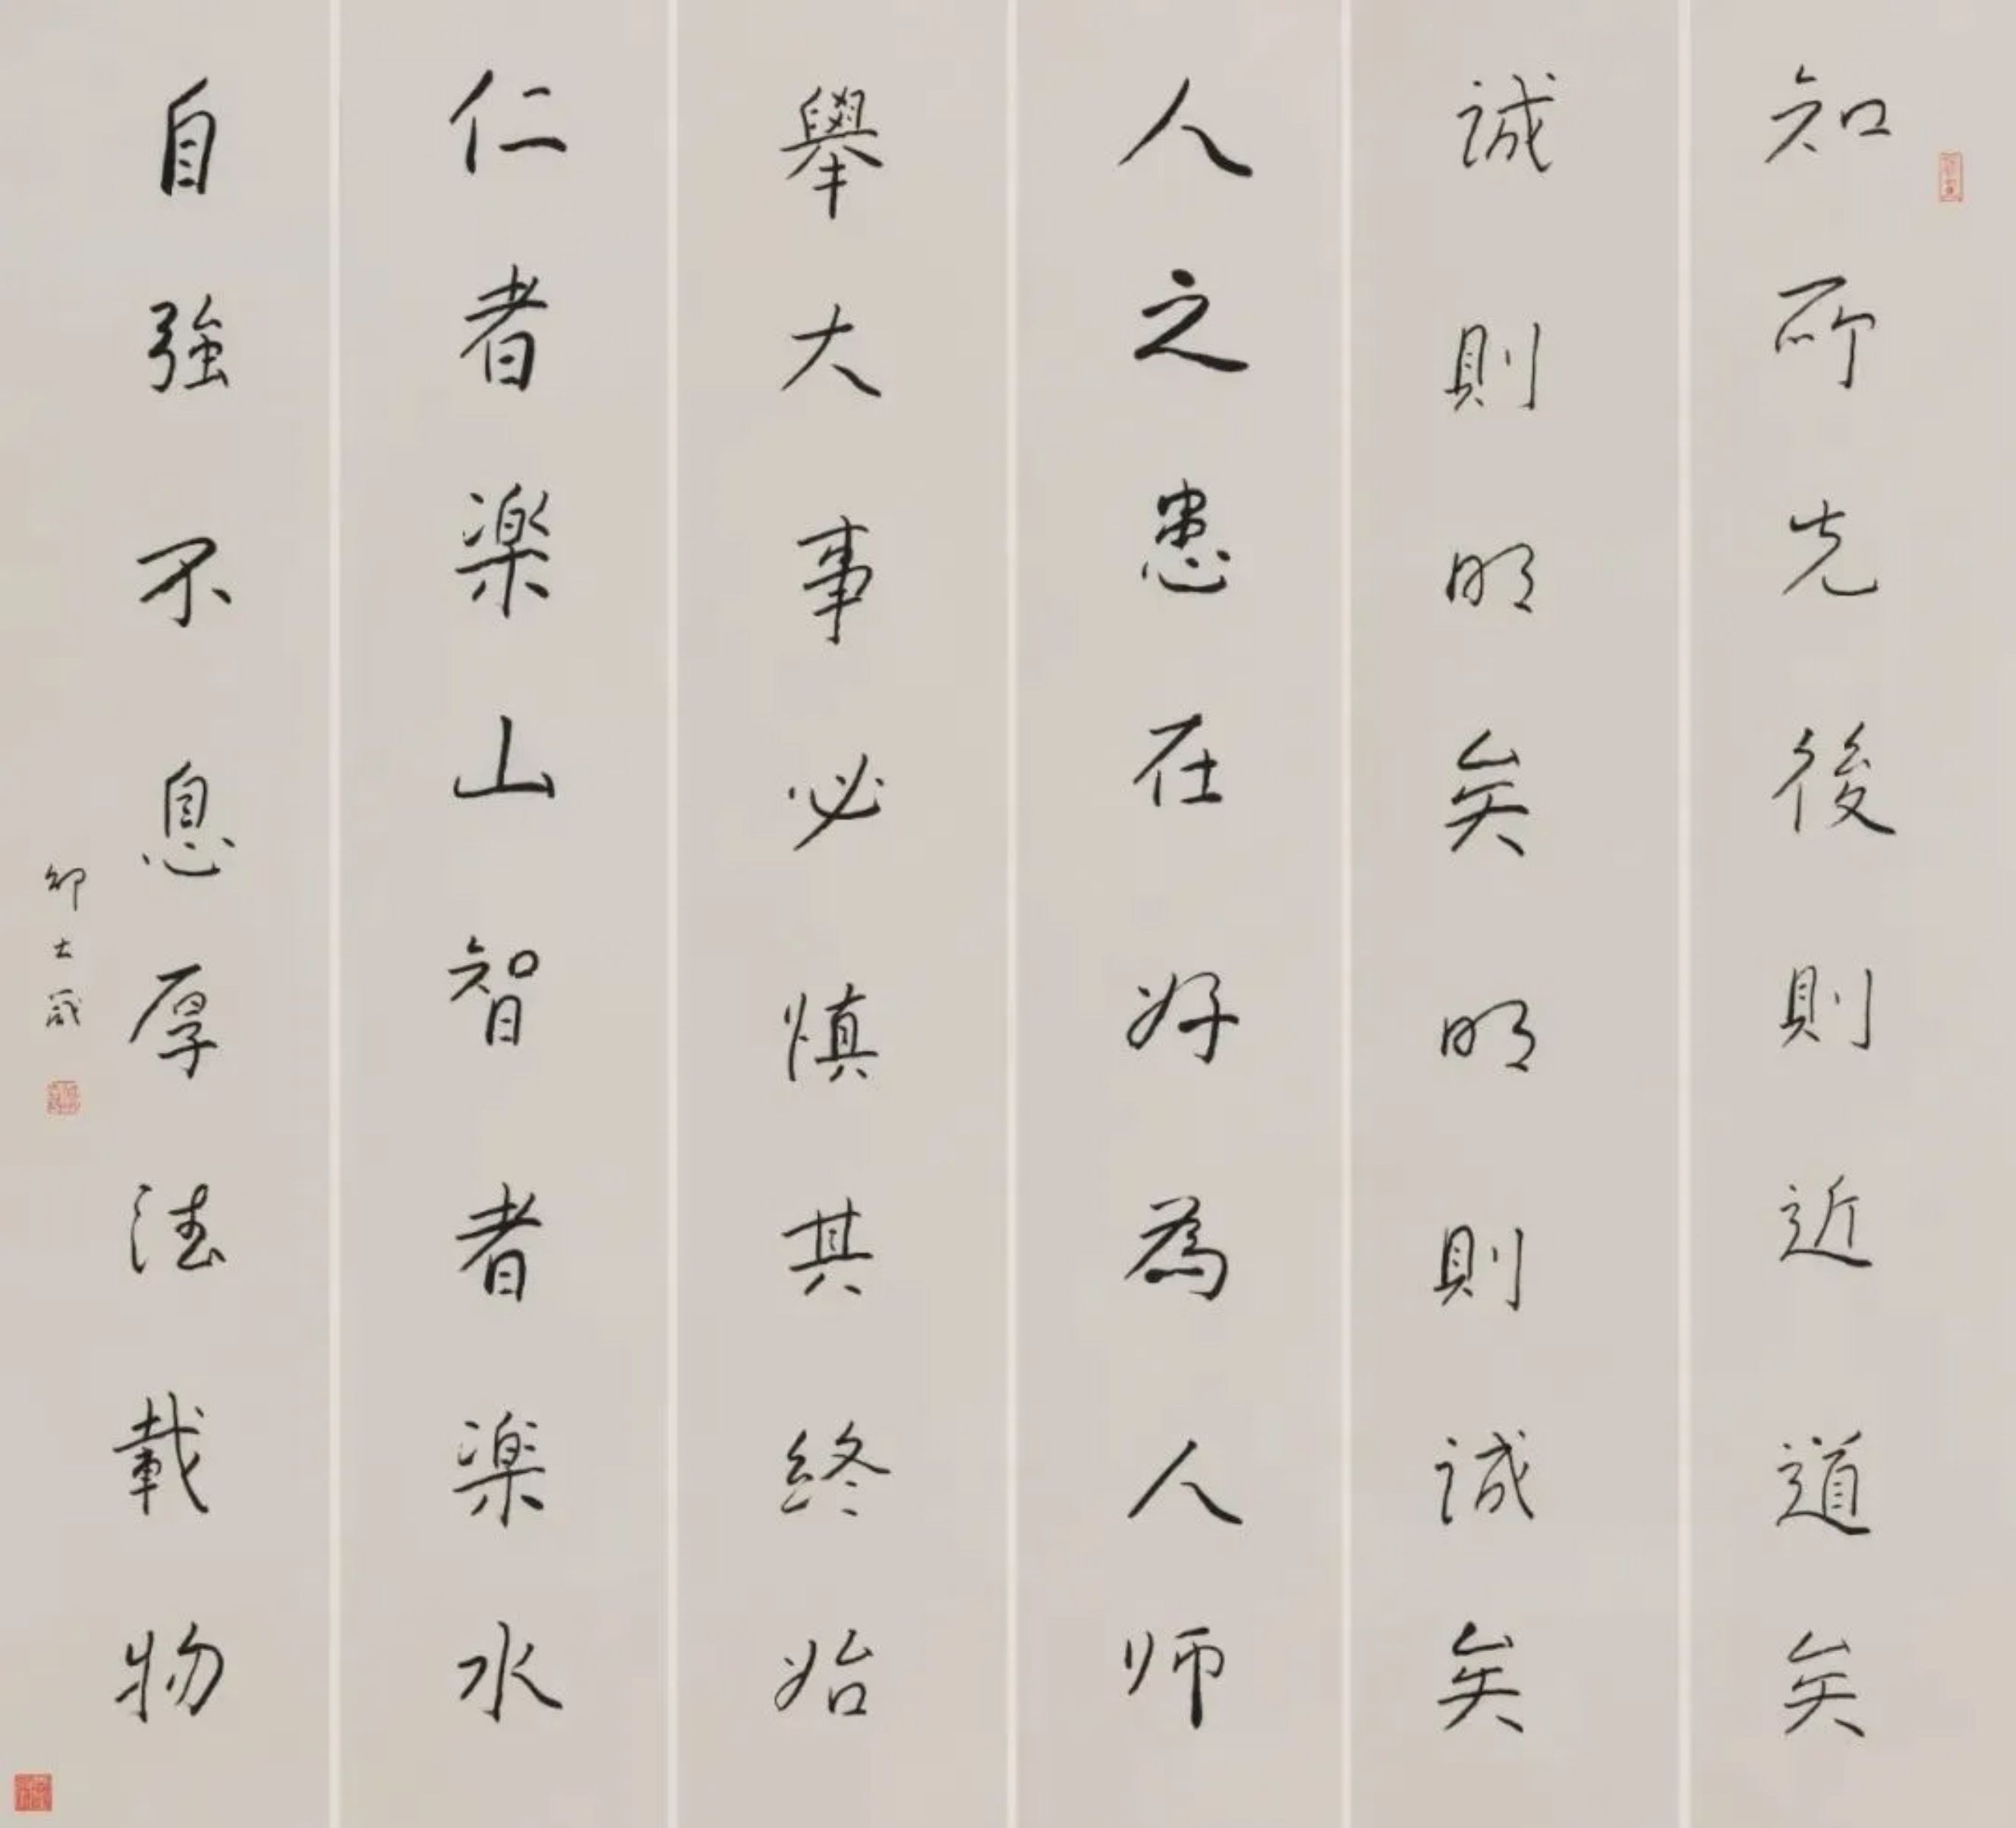 知所先後則近道矣
誠則明矣明則誠矣
人之患在好為人师
舉大事必慎其終始
仁者楽山智者楽水
自強不息厚德載物